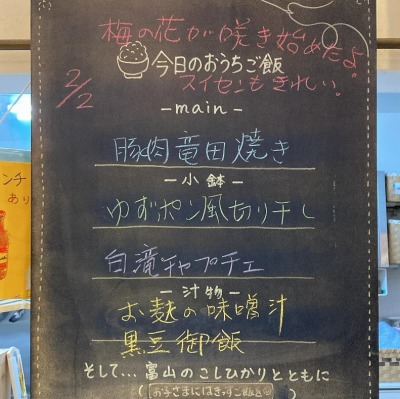 梅の花が咲き始めたよ
今日のおうちご飯
スイセンもきれい。
2/2
-main-
豚肉竜田焼き
-小鉢-
ゆずポン風切り干し
白滝チャプチェ
-汁物-
お麩の味噌汁
黒豆御飯
そして...富山のこしひかりとともに